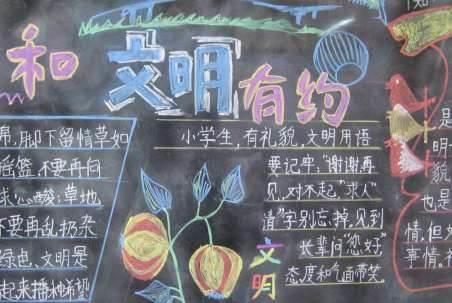 和 文明 有约
帚，脚下留情草如
摇篮，不要再问
球心酸；草地
不要再乱扔杂
绿色，文明是
起来播种希望
小学生，有礼貌，文明用语
要记牢；“谢谢再
见，对不起”，“求人”
“请”字别忘掉，见到
长辈问“您好”
态度和气面带笑。
文明
是
明
貌
也是
情，但
事情。